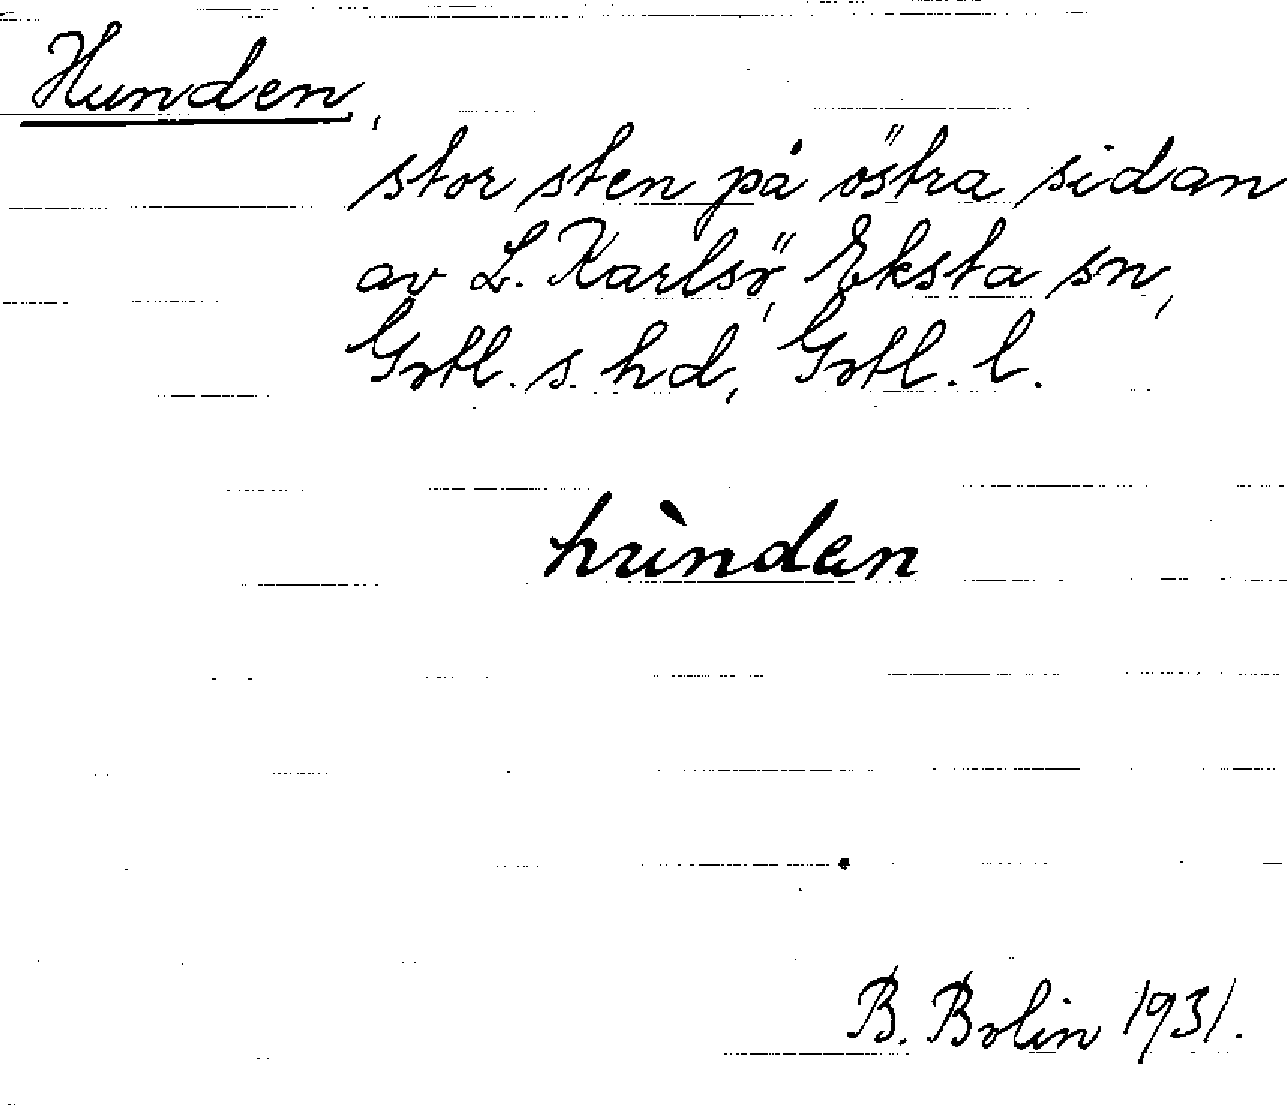 Hunden,
stor sten på östra sidan
av L. Karlsö, Eksta sn,
Gotl. s. hd, Gotl. l.
hùndan
B. Bolin 1931.